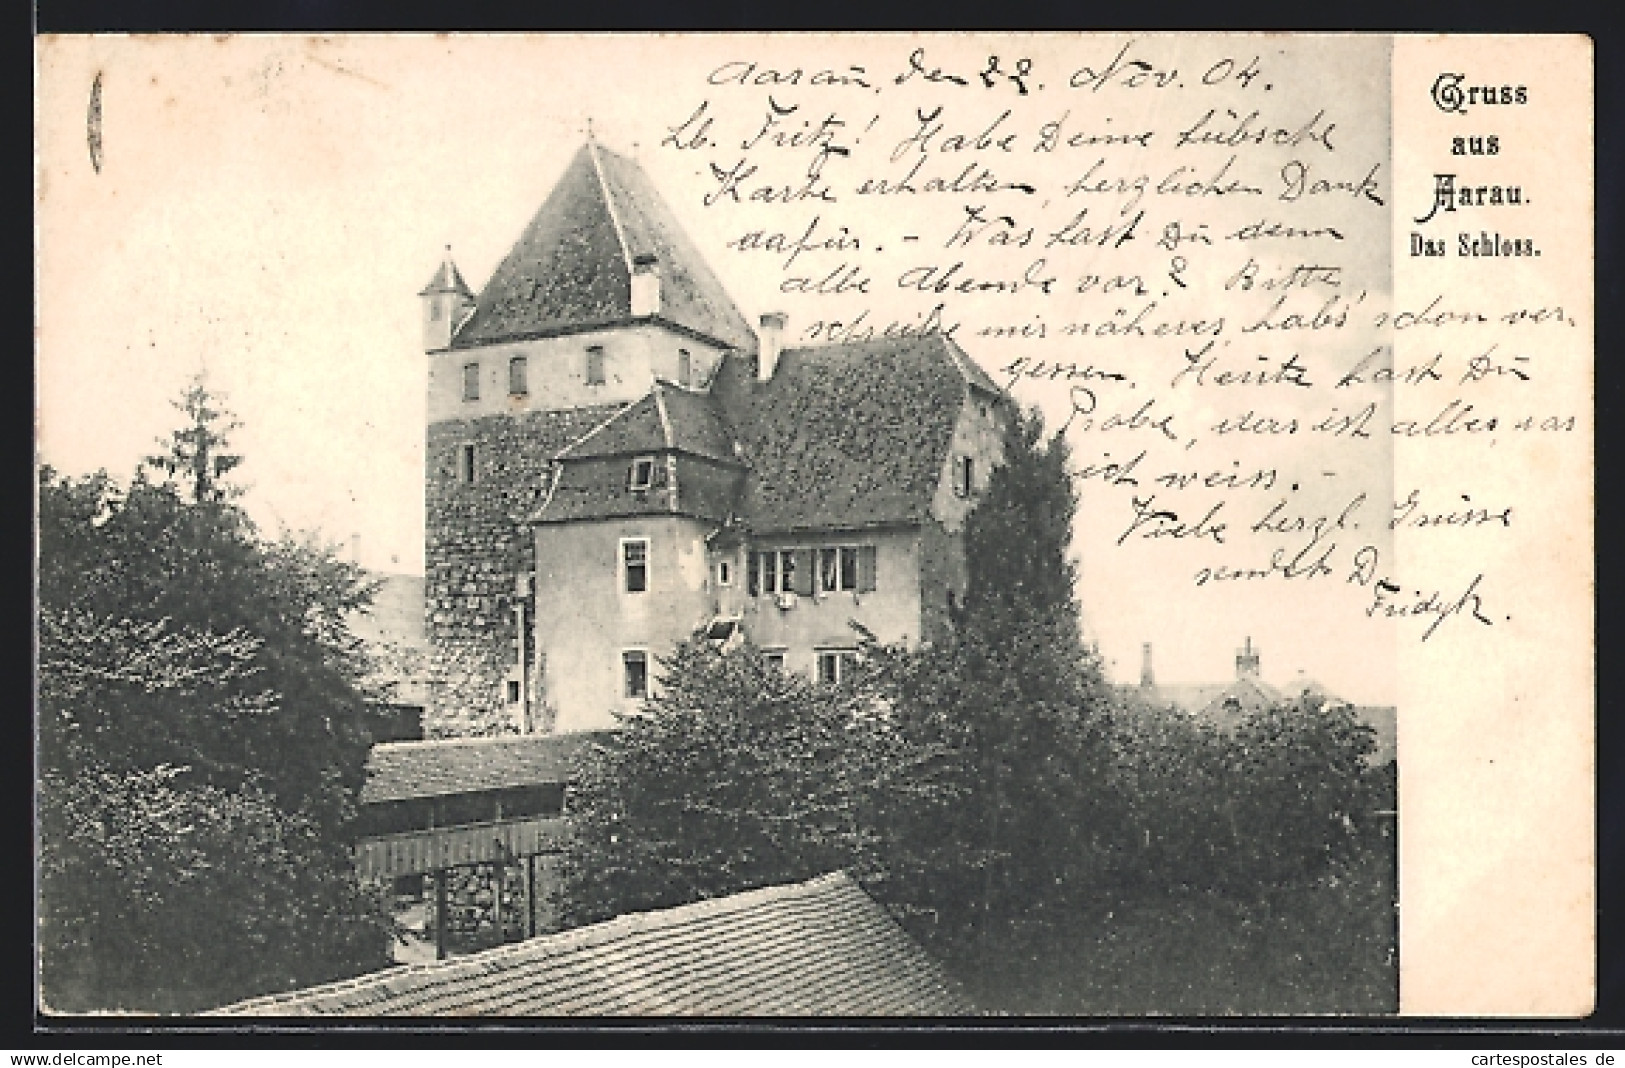 Aarau, den 22. Nov. 04.
Lb. Fritz! Habe Deine hübsche
Karte erhalten, herzlichen Dank
dafür. - Was hast Du denn
alle Abende vor? Bitte,
schreibe mir näheres, hab's schon ver-
gessen. Heute hast Du
Probe, das ist alles, was
ich weiss. -
Viele herzl. Grüsse
sendet D.
Gruss
aus
Aarau.
Das Schloss.
www.delcampe.net
cartespostales_de